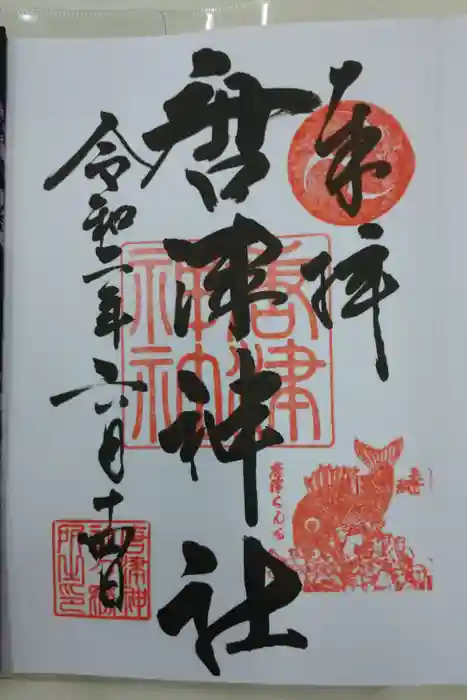 奉拝
唐津神社
令和二年六月十四日
唐津神社
唐津くんち